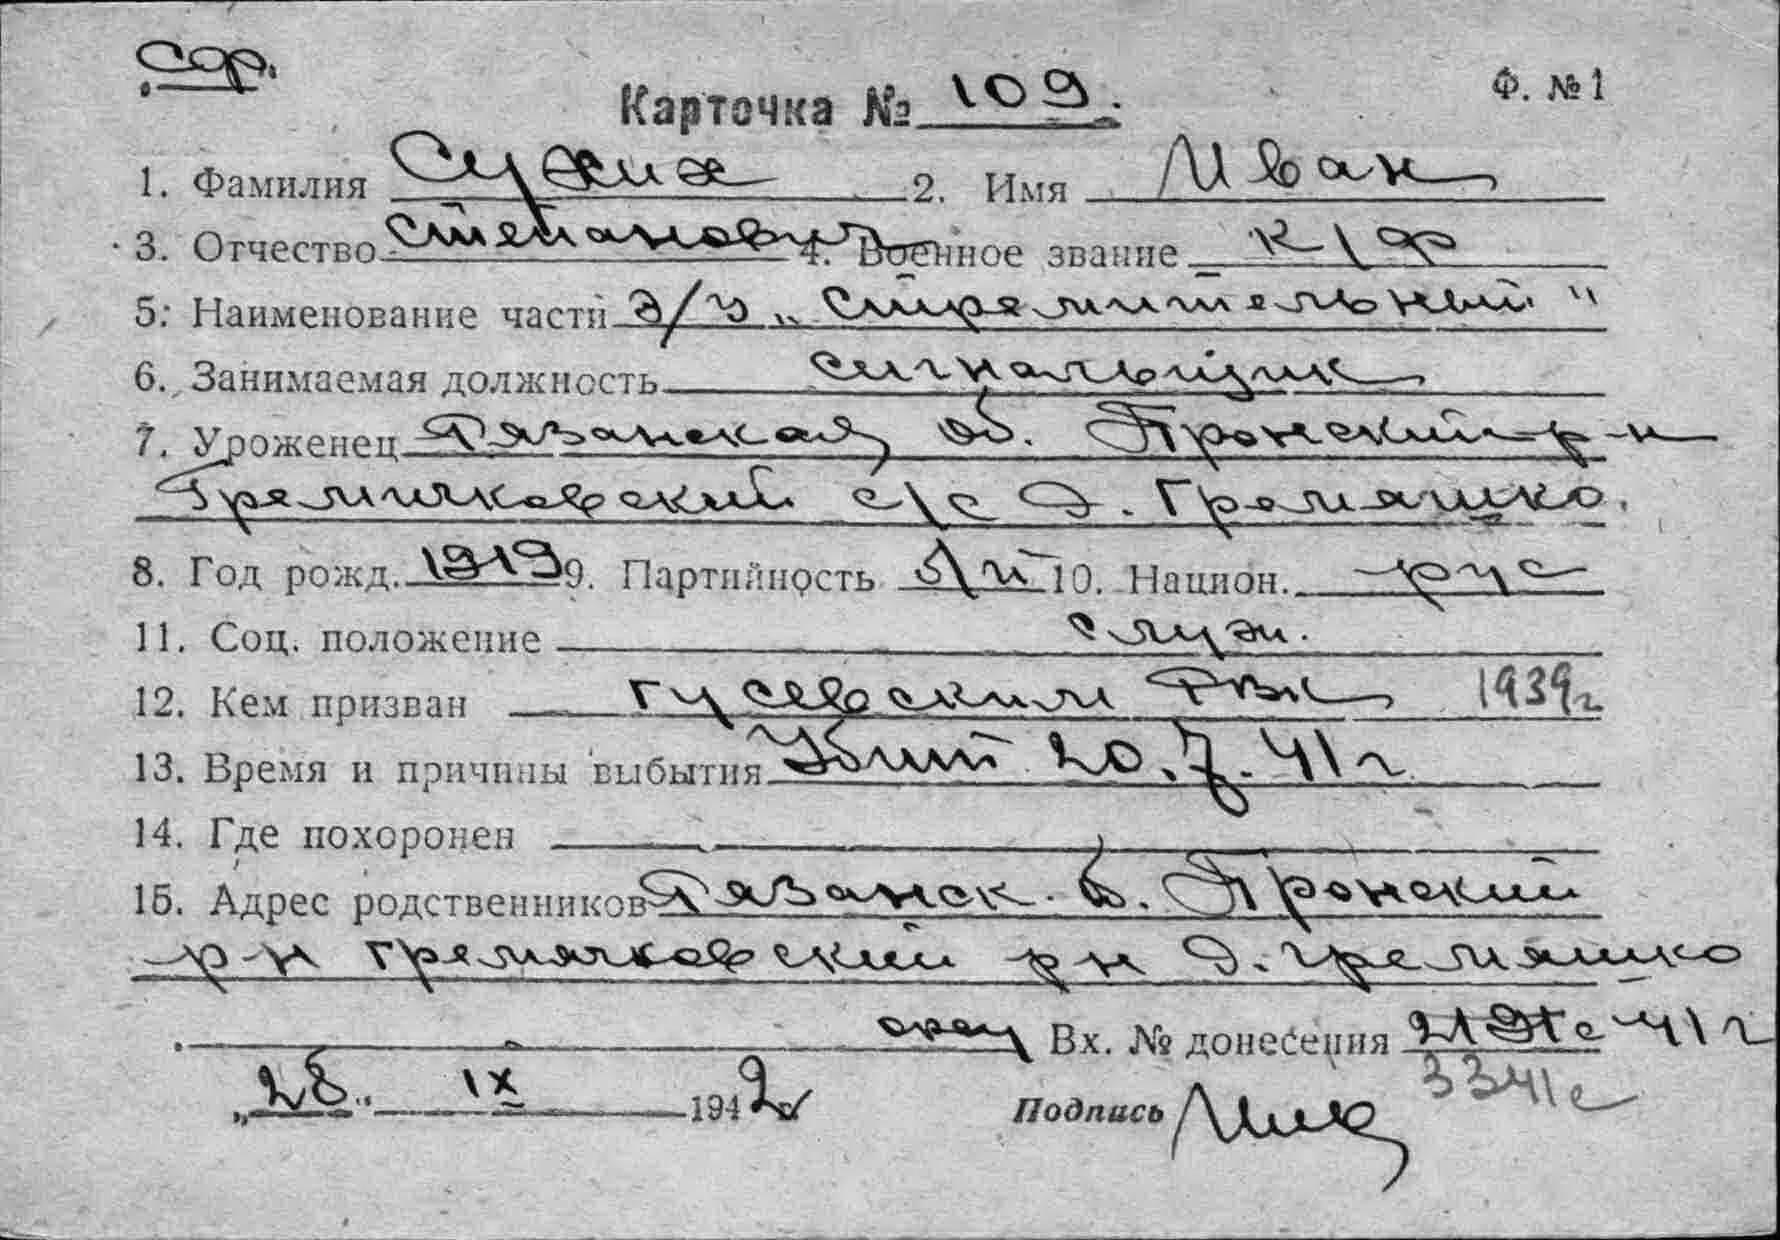 сор.
Карточка № 109. Ф. №1
1. Фамилия Сухих 2. Имя Иван
3. Отчество Степанович 4. Военное звание к/ф
5. Наименование части э/м „Стремительный"
6. Занимаемая должность сигнальщик
7. Уроженец Рязанская об. Пронский р-н
Гремячковский с/с д. Гремяшко.
8. Год рожд. 1919 9. Партийность б/п 10. Национ. рус
11. Соц. положение служ.
12. Кем призван Гусевским РВК 1939г
13. Время и причины выбытия Убит 20.7.41г
14. Где похоронен
15. Адрес родственников Рязанск. об. Пронский
р-н Гремячковский рн д. Гремяшко
отец Вх. № донесения 41г
„28" IX 1942 Подпись 3341с